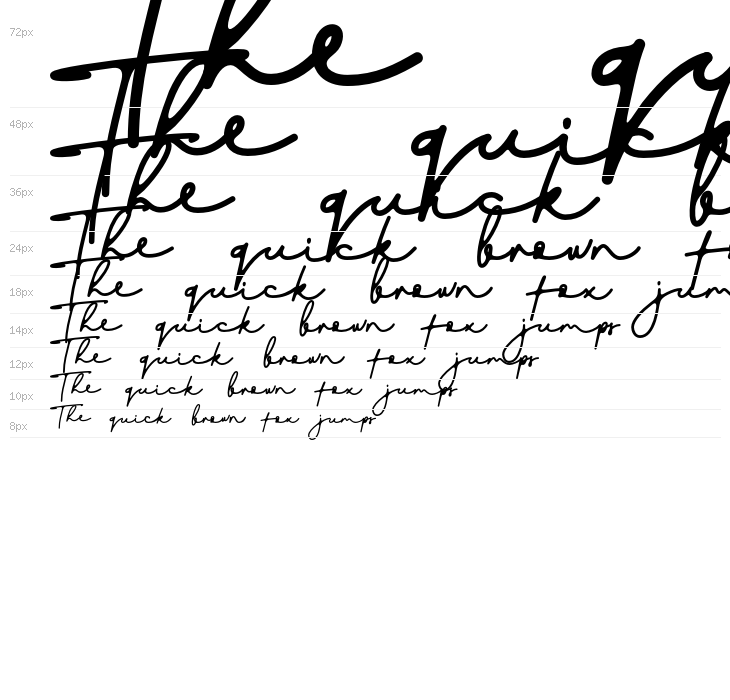 72px The qu
48px The quick
36px The quick b
24px The quick brown f
18px The quick brown fox jum
14px The quick brown fox jumps
12px The quick brown fox jumps
10px The quick brown fox jumps
8px The quick brown fox jumps